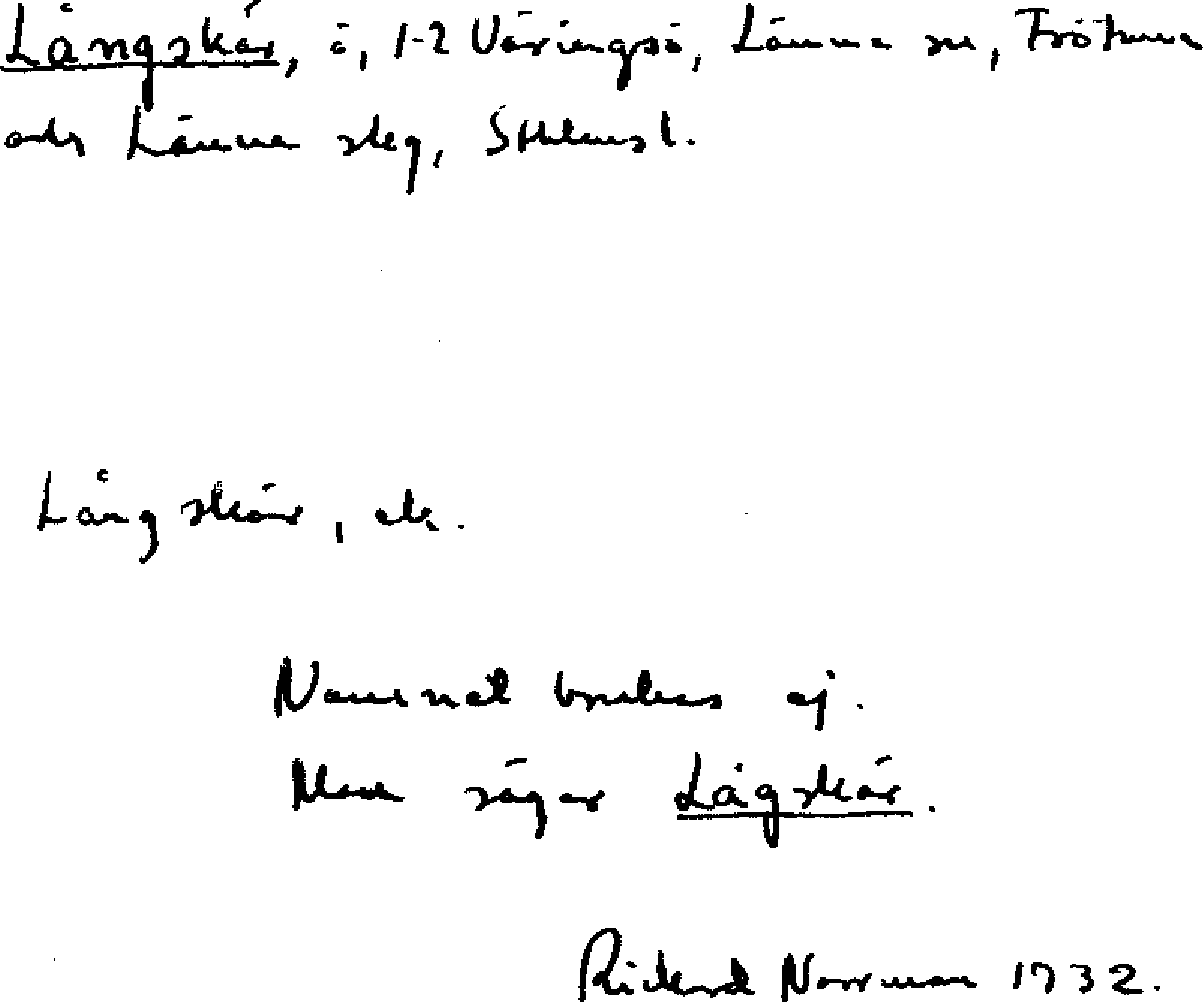 Långskär, ö, 1-2 Väringsö, Länna sn, Frötuna
och Länna skeg, Sthlmsl.
Långskär, ek.
Namnet brukas ej.
Man säger Lågskär.
Rickard Norrman 1932.